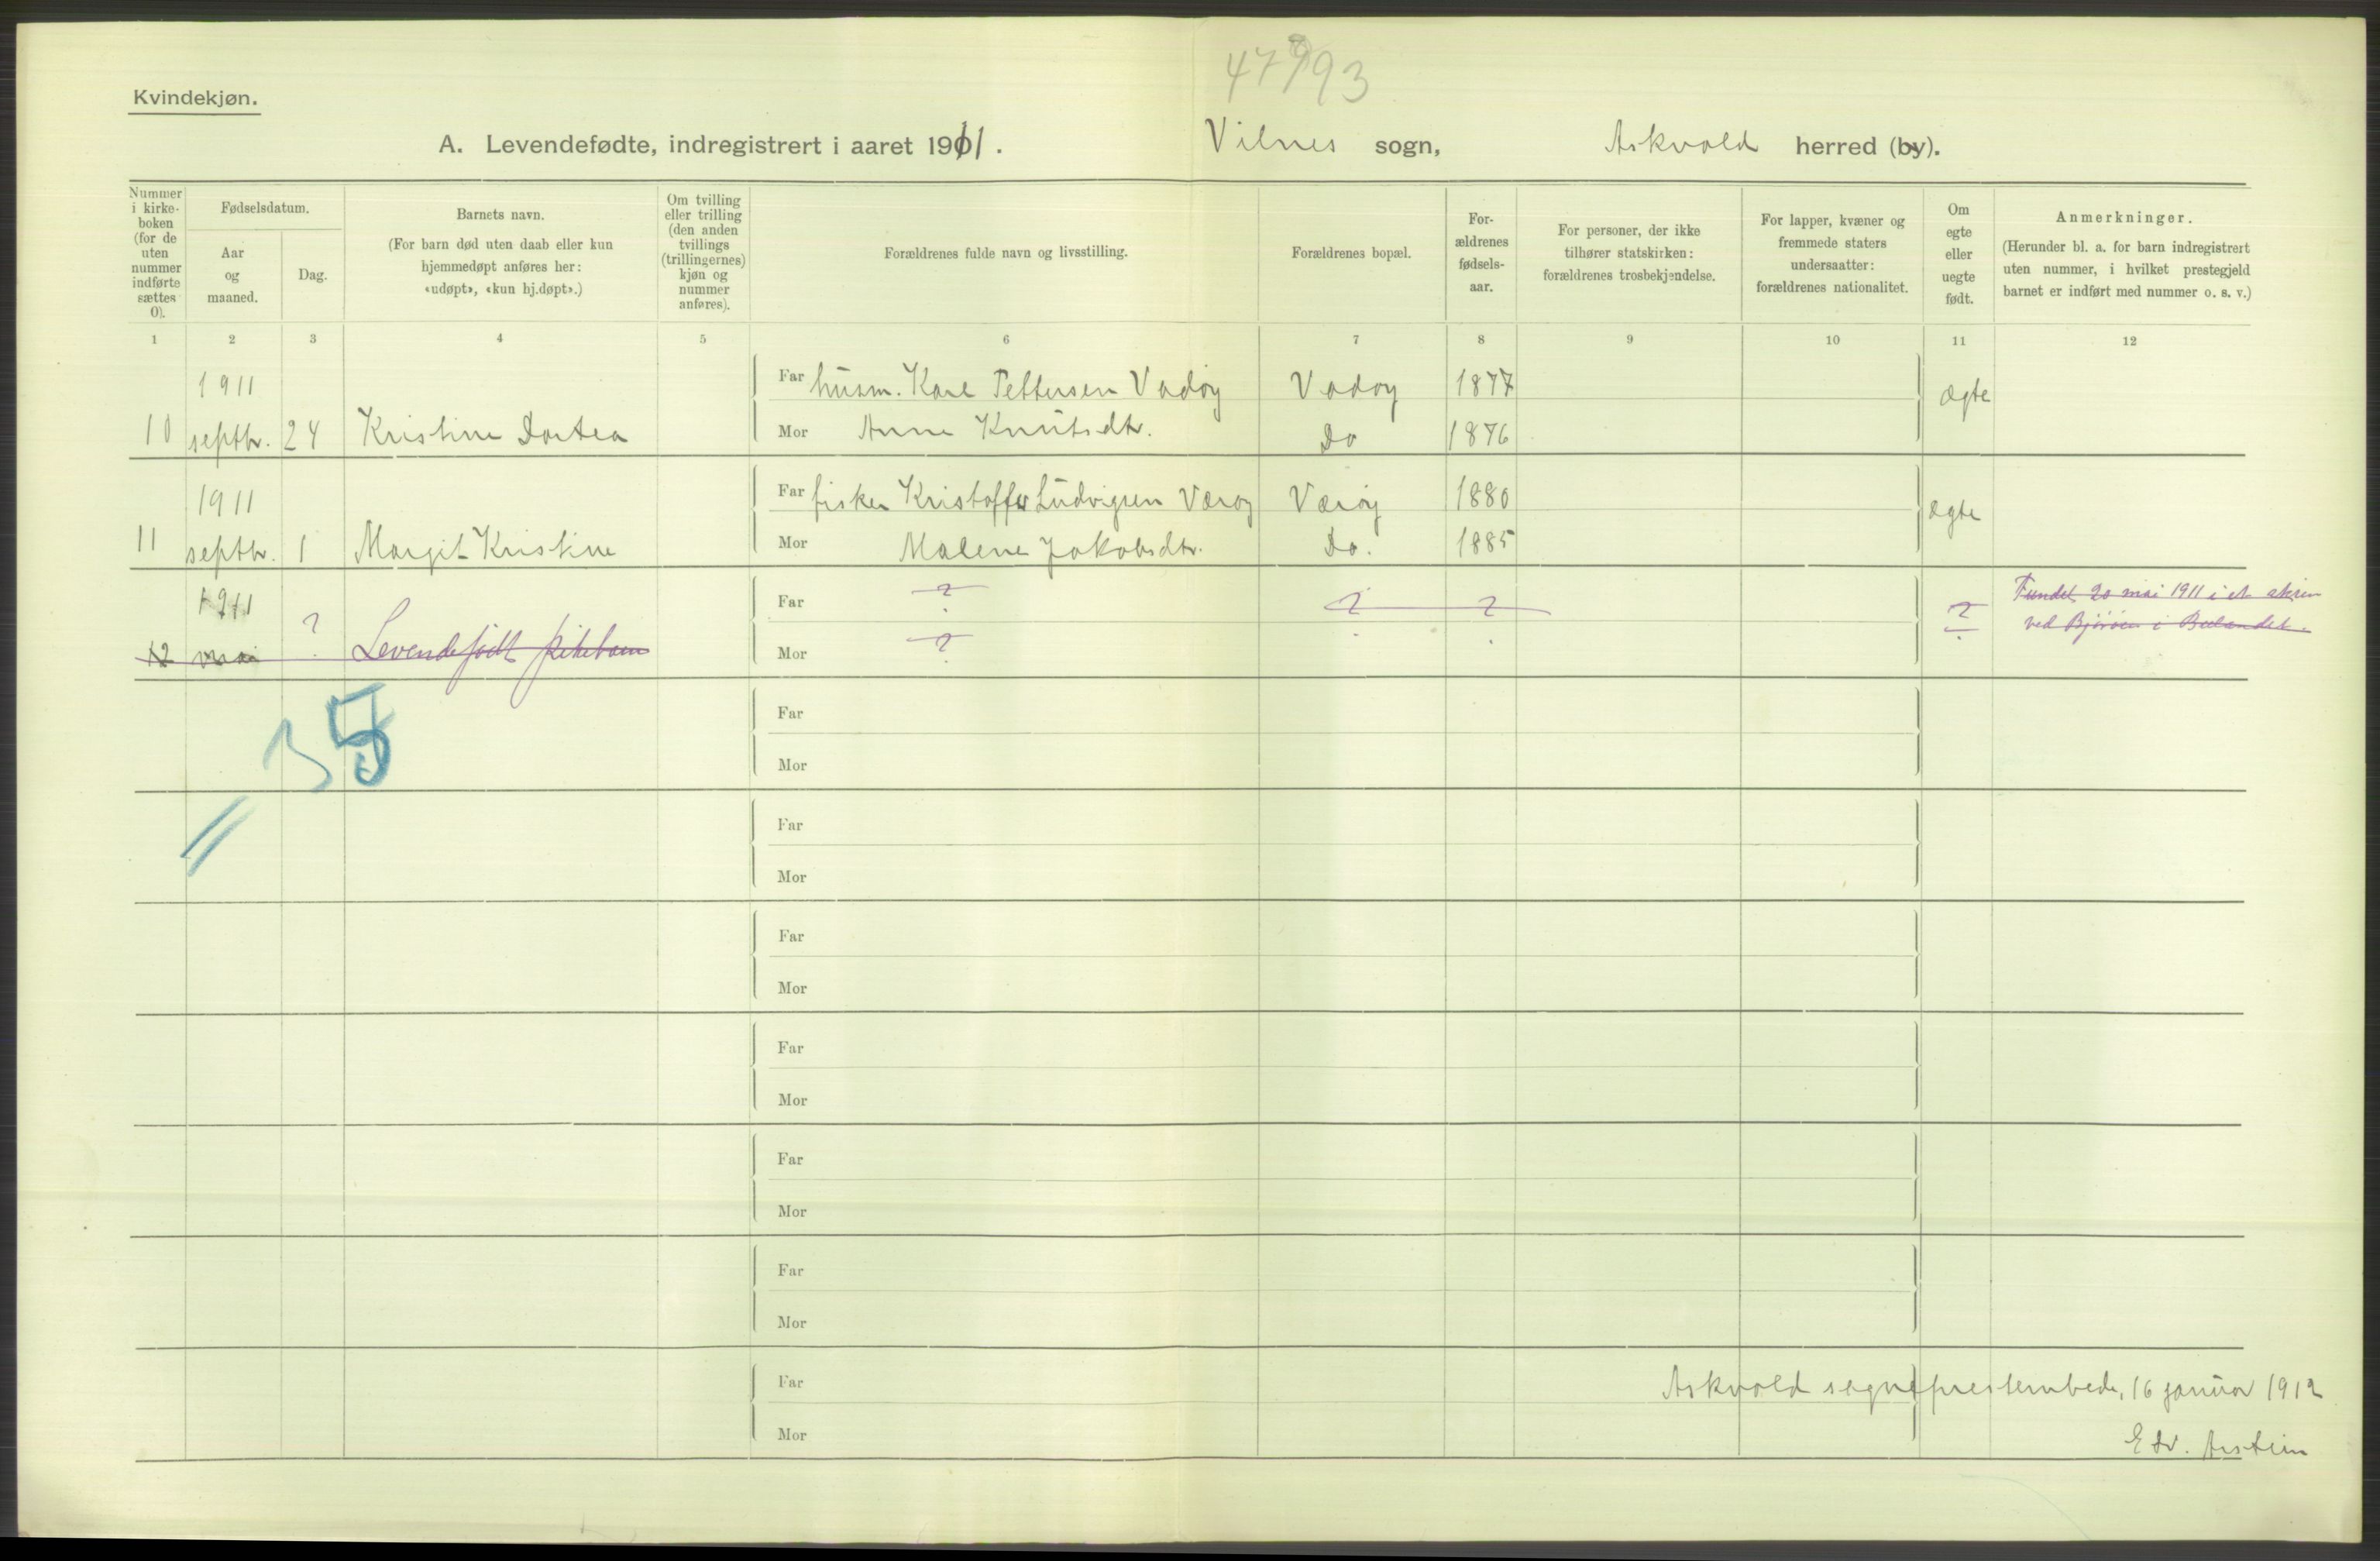 47993
Kvindekjøn.
A. Levendefødte, indregistrert i aaret 1911. Vilnes sogn, Askvold herred (by).
Nummer i kirke-boken (for de uten nummer indførte sættes 0).
Fødselsdatum.
Aar og maaned.
Dag.
Barnets navn.
(For barn død uten daab eller kun hjemmedøpt anføres her: «udøpt», «kun hj.døpt».)
Om tvilling eller trilling (den anden tvillings (trillingernes) kjøn og nummer anføres).
Forældrenes fulde navn og livsstilling.
Forældrenes bopæl.
For-ældrenes fødsels-aar.
For personer, der ikke tilhører statskirken: forældrenes trosbekjendelse.
For lapper, kvæner og fremmede staters undersaatter: forældrenes nationalitet.
Om egte eller uegte født.
Anmerkninger.
(Herunder bl. a. for barn indregistrert uten nummer, i hvilket prestegjeld barnet er indført med nummer o. s. v.)
1 2 3 4 5 6 7 8 9 10 11 12
1911 Far husm. Karl Pettersen Vadøy Vadøy 1877 ægte
10 septbr. 24 Kristine Dortea Mor Anne Knutsdtr. Do 1876
1911 Far fisker Kristoffer Ludvigsen Værøy Værøy 1880 ægte
11 septbr. 1 Margit Kristine Mor Malene Jakobsdtr. Do. 1885
1911 ? Far ? ? ? ? Fundet 20 mai 1911 i et skrin
ved Bjørøen i Bulandet.
12 mai Levendefødt pikebarn Mor ?
35
Far
Mor
Far
Mor
Far
Mor
Far
Mor
Far
Mor
Far
Mor
Far Askvold sogneprestembede, 16 januar 1912
Mor Edv. Arstein